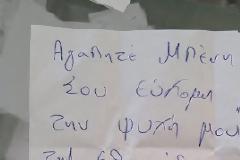 Αγαπητέ Μπένη
Σου εύχομαι
την ψυχή μου